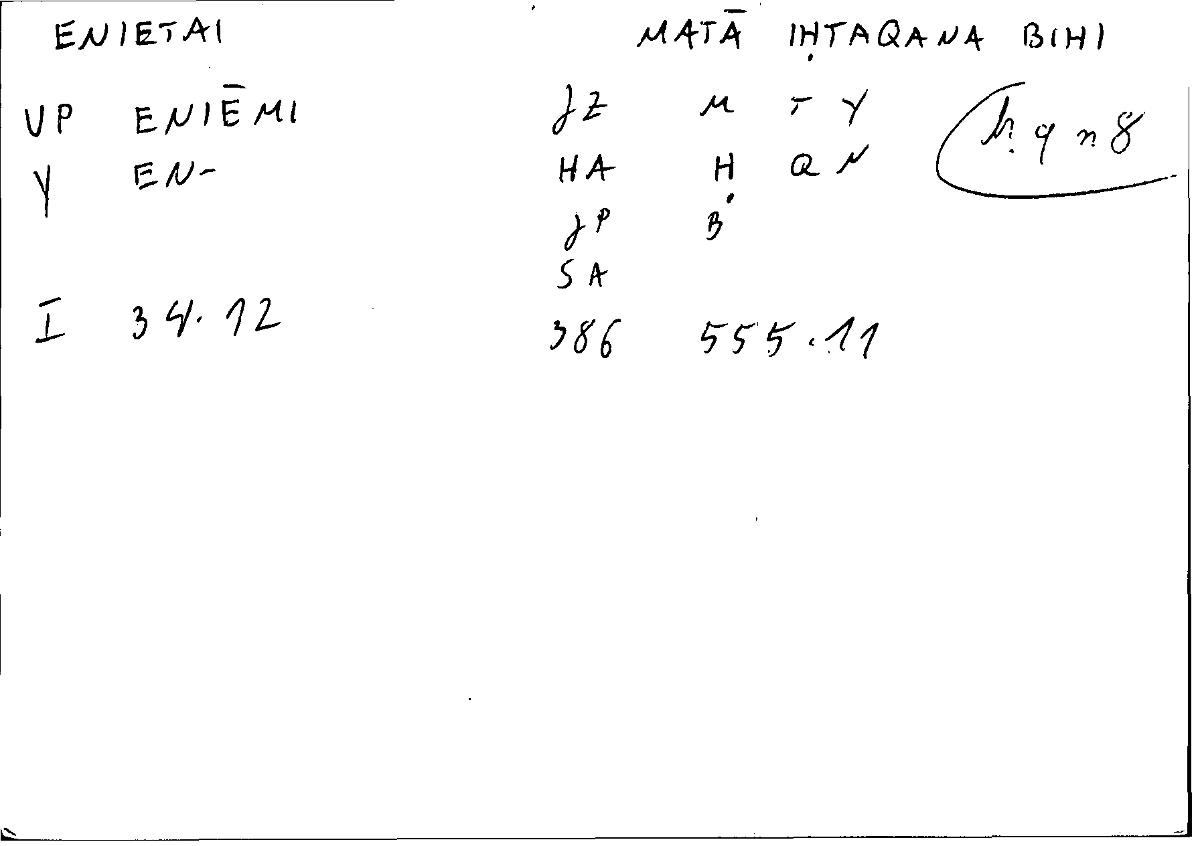 ENIETAI MATĀ IḤTAQANA BIHI
VP ENIĒMI JZ M T Y ḥqn8
Y EN- HA Ḥ Q N
JP B
SA
I 34.12 386 555.11